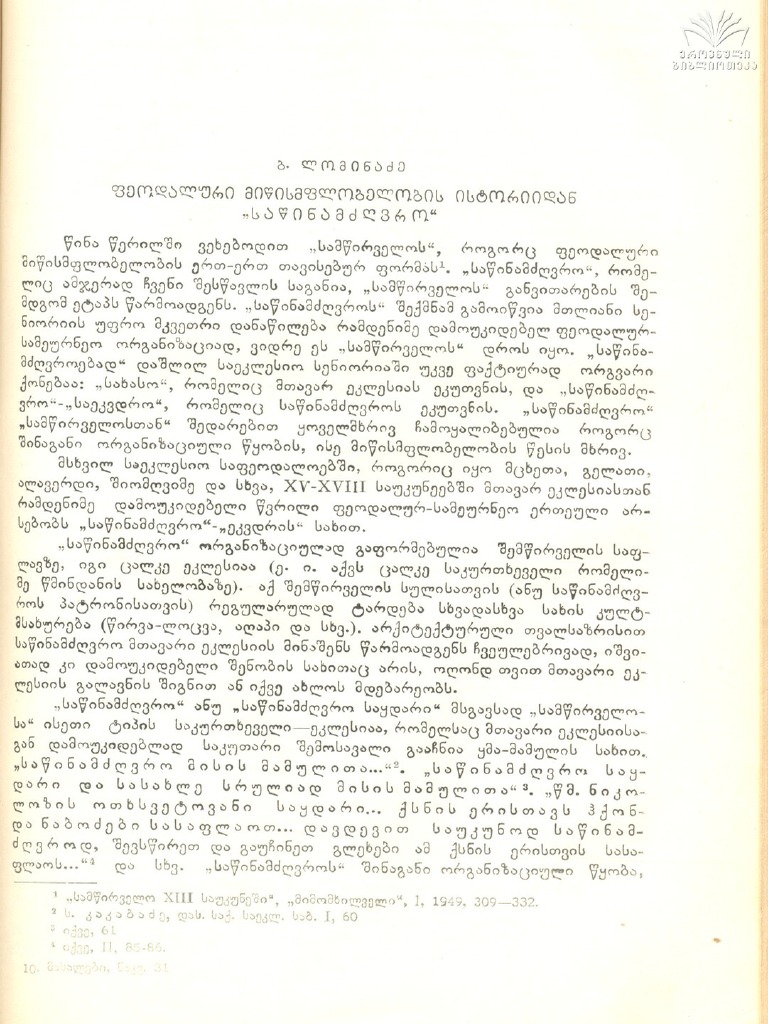 ეროვნული
ბიბლიოთეკა
ბ. ლომინაძე
ფეოდალური მიწისმფლობელობის ისტორიიდან
„საწინამძღვრო“
წინა წერილში ვეხებოდით „სამწირველოს“, როგორც ფეოდალური
მიწისმფლობელობის ერთ-ერთ თავისებურ ფორმას¹. „საწინამძღვრო“, რომე-
ლიც ამჯერად ჩვენი შესწავლის საგანია, „სამწირველოს“ განვითარების შე-
მდგომ ეტაპს წარმოადგენს. „საწინამძღვროს“ შექმნამ გამოიწვია მთლიანი სე-
ნიორიის უფრო მკვეთრი დანაწილება რამდენიმე დამოუკიდებელ ფეოდალურ-
სამეურნეო ორგანიზაციად, ვიდრე ეს „სამწირველოს“ დროს იყო. „საწინა-
მძღვროებად“ დაშლილ საეკლესიო სენიორიაში უკვე ფაქტიურად ორგვარი
ქონებაა: „სახასო“, რომელიც მთავარ ეკლესიას ეკუთვნის, და „საწინამძღ-
ვრო“-„საეკვდრო“, რომელიც საწინამძღვროს ეკუთვნის. „საწინამძღვრო“
„სამწირველოსთან“ შედარებით ყოველმხრივ ჩამოყალიბებულია როგორც
შინაგანი ორგანიზაციული წყობის, ისე მიწისმფლობელობის წესის მხრივ.
მსხვილ საეკლესიო საფეოდალოებში, როგორიც იყო მცხეთა, გელათი,
ალავერდი, შიომღვიმე და სხვა, XV-XVIII საუკუნეებში მთავარ ეკლესიასთან
რამდენიმე დამოუკიდებელი წვრილი ფეოდალურ-სამეურნეო ერთეული არ-
სებობს „საწინამძღვრო“-„ეკვდრის“ სახით.
„საწინამძღვრო“ ორგანიზაციულად გაფორმებულია შემწირველის საფ-
ლავზე, იგი ცალკე ეკლესიაა (ე. ი. აქვს ცალკე საკურთხეველი რომელი-
მე წმინდანის სახელობაზე). აქ შემწირველის სულისათვის (ანუ საწინამძღვ-
როს პატრონისათვის) რეგულარულად ტარდება სხვადასხვა სახის კულტ-
მსახურება (წირვა-ლოცვა, აღაპი და სხვ.). არქიტექტურული თვალსაზრისით
საწინამძღვრო მთავარი ეკლესიის მინაშენს წარმოადგენს ჩვეულებრივად, იშვი-
ათად კი დამოუკიდებელი შენობის სახითაც არის, ოღონდ თვით მთავარი ეკ-
ლესიის გალავნის შიგნით ან იქვე ახლოს მდებარეობს.
„საწინამძღვრო“ ანუ „საწინამძღვრო საყდარი“ მსგავსად „სამწირველო-
სა“ ისეთი ტიპის საკურთხეველი—ეკლესიაა, რომელსაც მთავარი ეკლესიისა-
გან დამოუკიდებლად საკუთარი შემოსავალი გააჩნია ყმა-მამულის სახით.
„საწინამძღვრო მისის მამულითა...“². „საწინამძღვრო საყ-
დარი და სასახლე სრულიად მისის მამულითა“³. „წმ. ნიკო-
ლოზის ოთხსვეტოვანი საყდარი... ქსნის ერისთავს ჰქონ-
და ნაბოძები სასაფლაოთ... დავდევით საუკუნოდ საწინამ-
ძღვროდ, შევსწირეთ და გაუჩინეთ გლეხები ამ ქსნის ერისთვის სასა-
ფლაოს...“⁴ და სხვ. „საწინამძღვროს“ შინაგანი ორგანიზაციული წყობა,
¹ „სამწირველო XIII საუკუნეში“, „მიმომხილველი“, I, 1949, 309—332.
² ს. კაკაბაძე, დას. საქ. საეკლ. საბ. I, 60
³ იქვე, 61
⁴ იქვე, II, 85-86.
10. მასალები, ნაკვ. 31